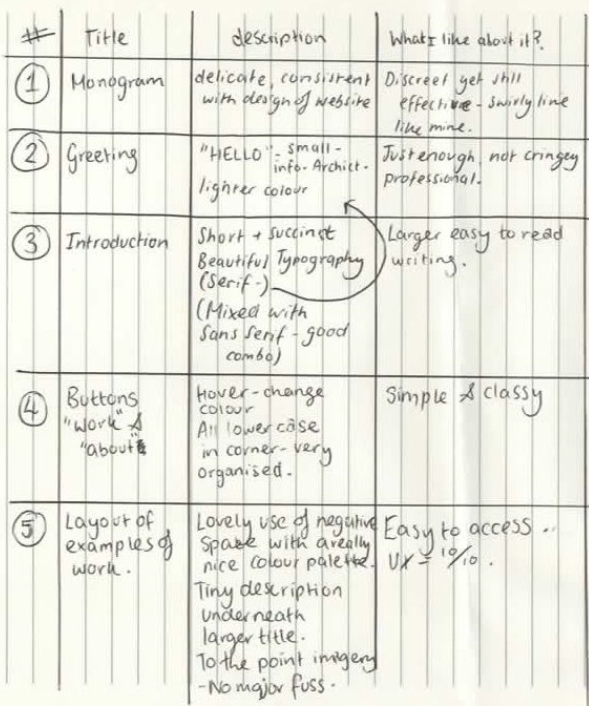 # Title description What I like about it?
1 Monogram
delicate, consistent
with design of website
Discreet yet still
effective - swirly line
like mine.
2 Greeting
"HELLO" - small -
info. Archict -
lighter colour
Just enough, not cringey
professional.
3 Introduction
Short + succinct
Beautiful Typography
(Serif -)
(Mixed with
Sans Serif - good
combo)
Larger easy to read
writing.
4 Buttons
"work" &
"about"
Hover - change
colour
All lower case
in corner - very
organised.
Simple & classy
5 Layout of
examples of
work.
Lovely use of negative
space with a really
nice colour palette.
Tiny description
underneath
larger title.
To the point imagery
- No major fuss.
Easy to access ..
UX = 10/10.